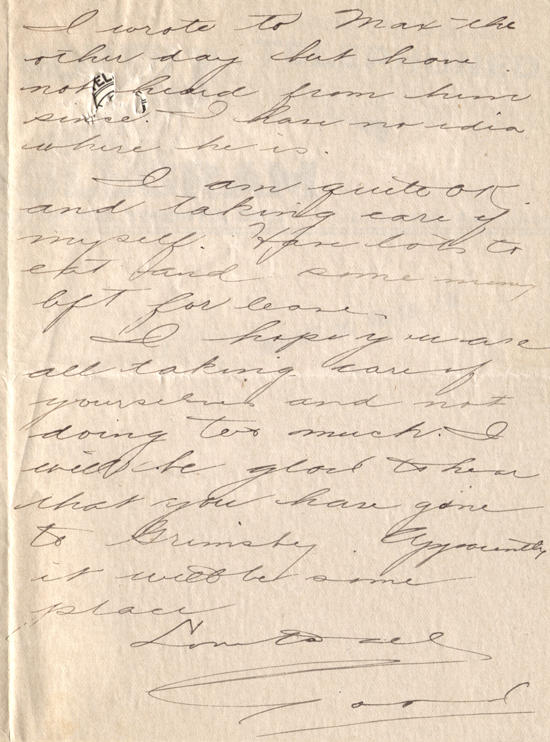 I wrote to Max the
other day but have
not heard from him
since. I have no idia
where he is.
I am quite OK
and taking care of
myself. Have lots to
eat and some money
left for leave.
I hope you are
all taking care of
yourselves and not
doing too much. I
will be glad to hear
that you have gone
to Grimsby. Apparently
it will be some
place
Love to all